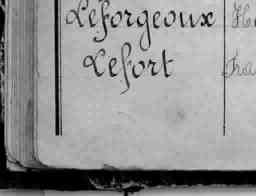 Leforgeoux
Lefort